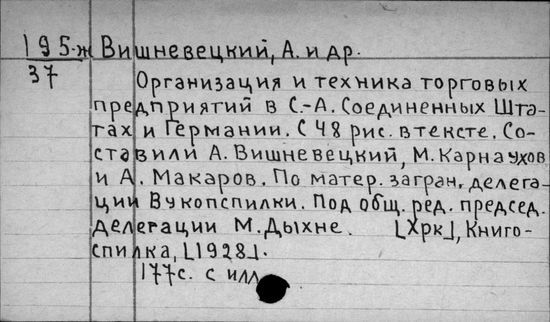 195-ж Вишневецкий, А. и др.
37
Организация и техника торговых
предприятий в С.-А. Соединенных Шта-
тах и Германии. С 48 рис. в тексте. Со-
ставили А. Вишневецкий, М. Карнаухов
и А. Макаров. По матер. загран. делега-
ции Вукопспилки. Под общ. ред. председ.
делегации М. Дыхне. [Хрк], Книго-
спилка, [1928].
177с. с илл